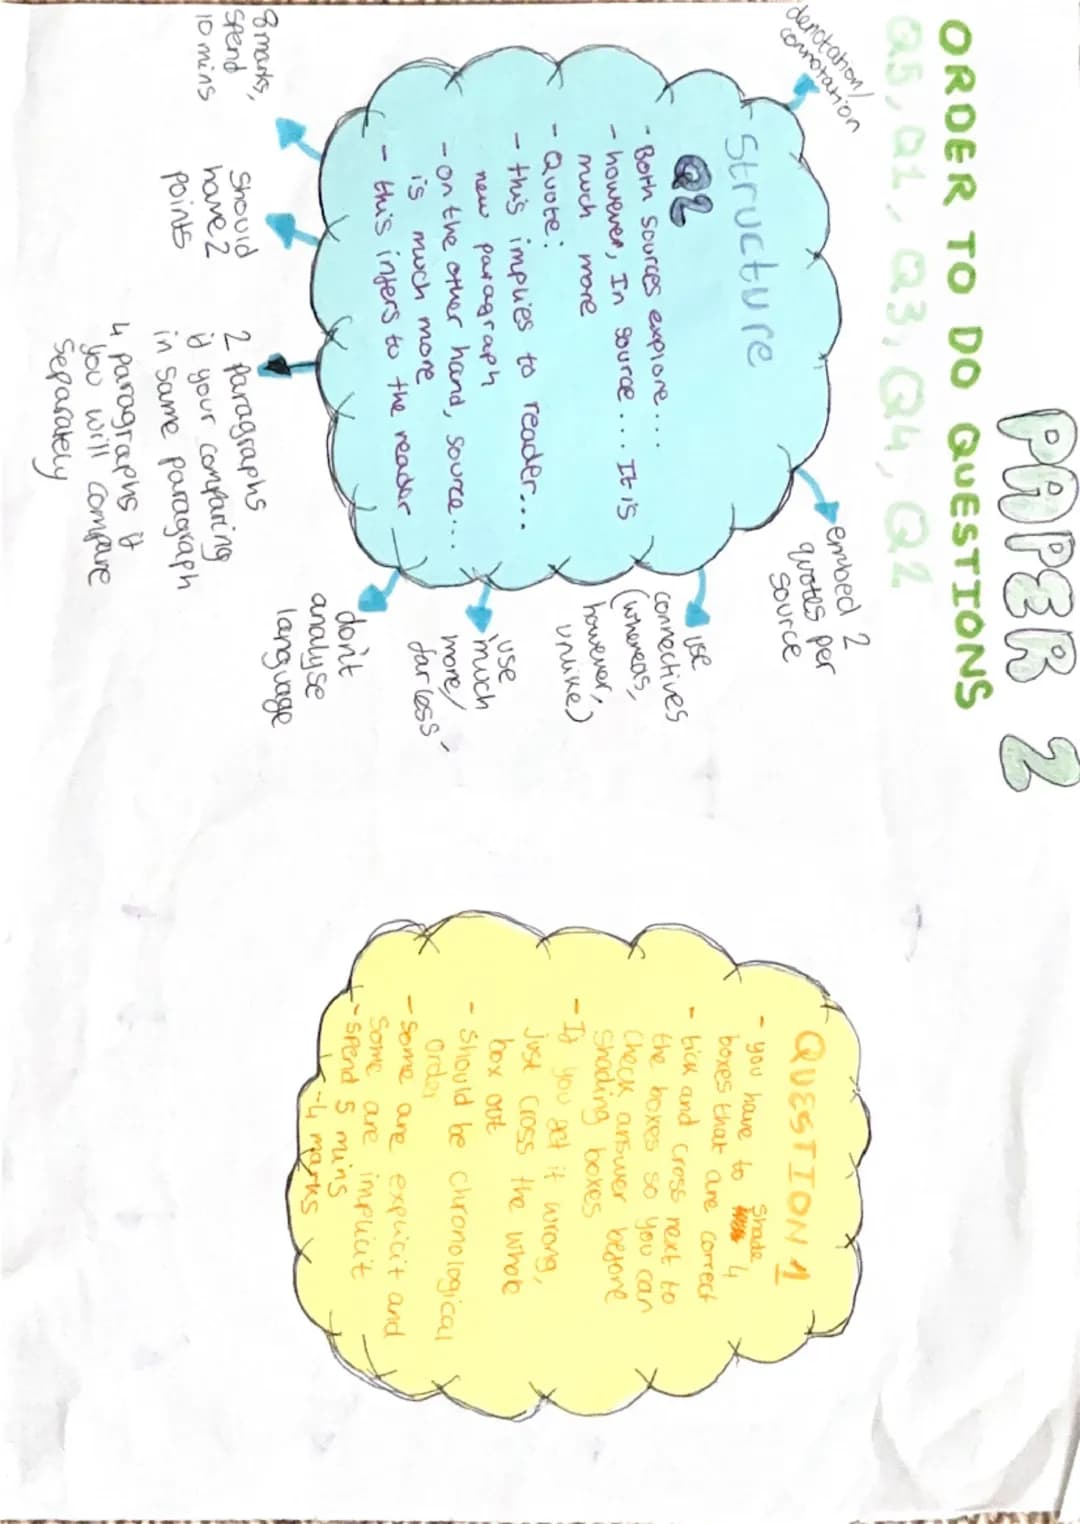 PAPER 2
ORDER TO DO QUESTIONS
Q5, Q1, Q3, Q4, Q2
denotation/
connotation
Structure
Q2
- Both sources explore...
- however, In source... It is
much more
- Quote:
- this implies to reader...
new paragraph
- on the other hand, source...
is much more
- this infers to the reader
embed 2
quotes per
source
use
connectives
(whereas,
however,
unlike)
use
'much
more/
far less-
don't
analyse
language
8 marks,
spend
10 mins
should
have 2
points
2 paragraphs
if your comparing
in same paragraph
4 paragraphs if
you will compare
separately
QUESTION 1
- you have to shade 4
boxes that are correct
- tick and cross next to
the boxes so you can
check answer before
shading boxes
- If you get it wrong,
just cross the whole
box out
- should be chronological
order
- some are explicit and
some are implicit
- spend 5 mins
- 4 marks